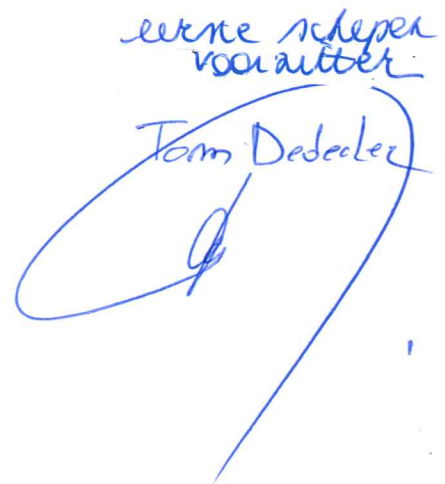 eerste schepen
voorzitter
Tom Dedecker